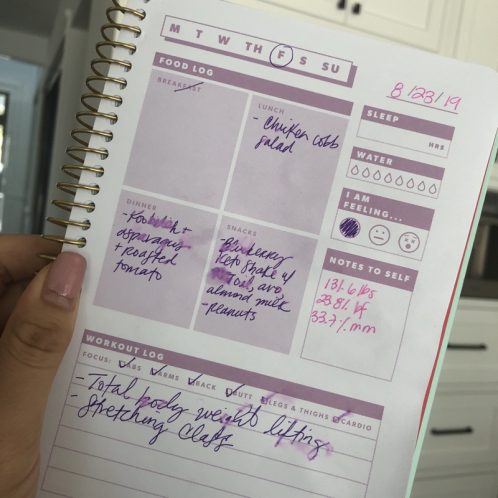 M T W TH F S SU
8/23/19
FOOD LOG
BREAKFAST
LUNCH
- Chicken cobb
salad
DINNER
asparagus
+ Roasted
tomato
SNACKS
- Blueberry
Keto Shake w/
avo,
almond milk
- Peanuts
SLEEP
HRS
WATER
I AM
FEELING...
NOTES TO SELF
131.6 lbs
23.8% bf
33.7% mm
WORKOUT LOG
FOCUS: ABS ARMS BACK BUTT LEGS & THIGHS CARDIO
- Total body weight lifting
- Stretching Class